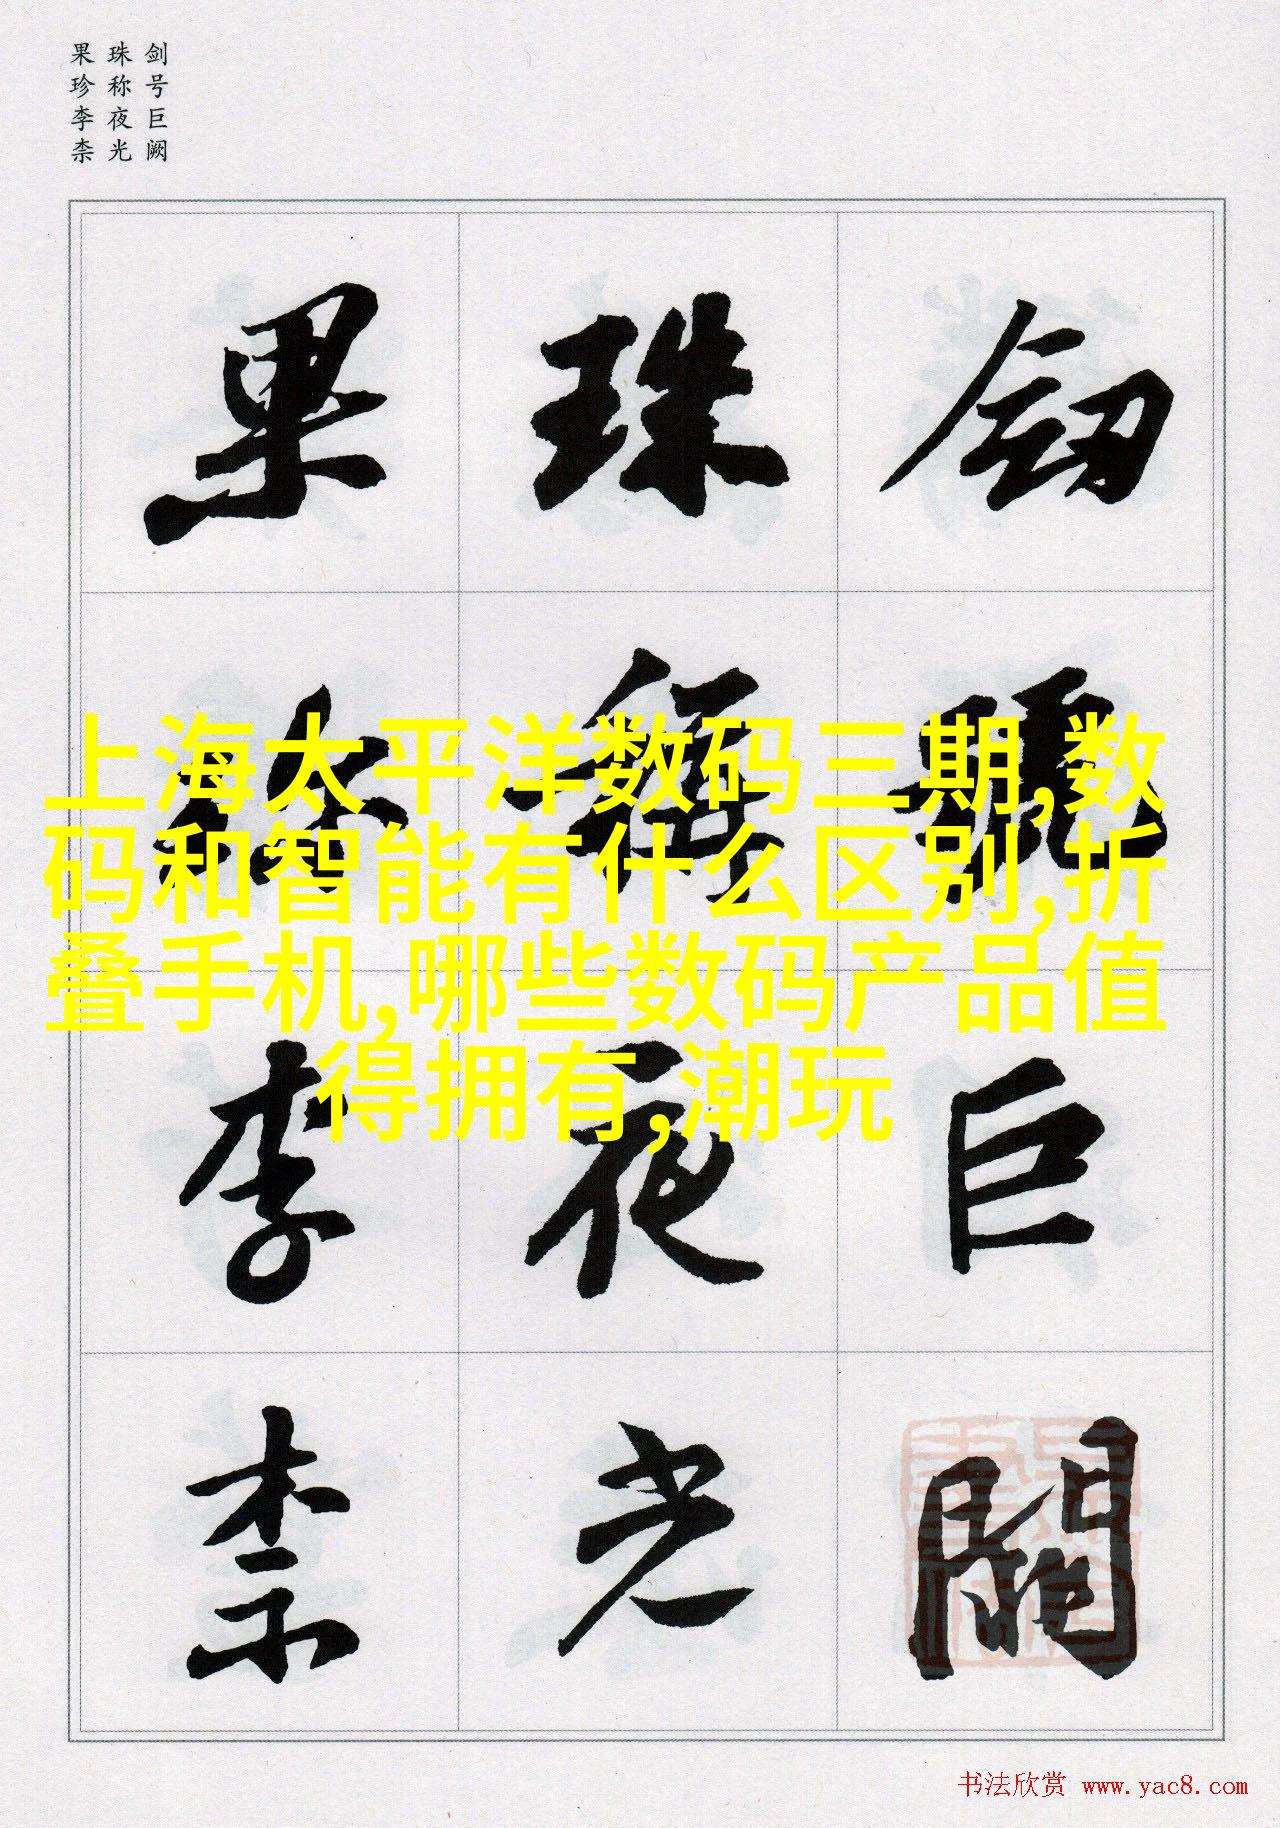 剑号巨阙
珠称夜光
果珍李柰
釼號巨闕
珠稱夜光
果珎李柰
上海太平洋数码三期,数
码和智能有什么区别,折
叠手机,哪些数码产品值
得拥有,潮玩
书法欣赏 www.yac8.com